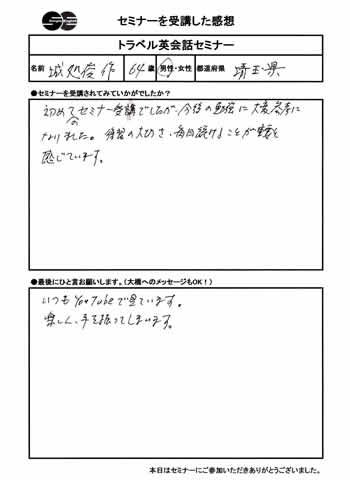 セミナーを受講した感想
トラベル英会話セミナー
名前 城 俊作 64 歳 男性・女性 都道府県 埼玉県
●セミナーを受講されてみていかがでしたか？
初めてのセミナー受講でしたが、今後の勉強に大変参考に
なりました。復習の大切さ、毎日続けることが重要と
感じています。
●最後にひと言お願いします。(大橋へのメッセージもOK！)
いつもYouTubeで見ています。
楽しく、手を振ってしまいます。
本日はセミナーにご参加いただきありがとうございました。